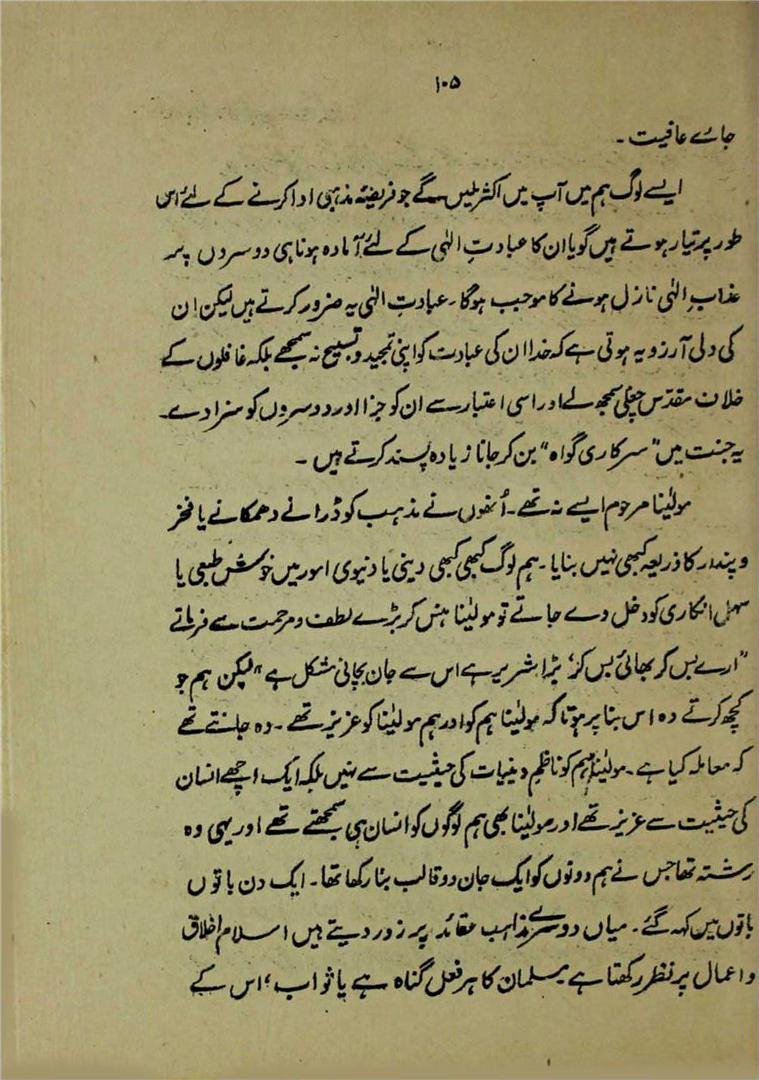 ۱۰۵
جائے عافیت ۔
ایسے لوگ ہم میں آپ میں اکثر ملیں گے جو فریضۂ مذہبی ادا کرنے کے لئے اس
طور پر تیار ہوتے ہیں گویا ان کا عبادتِ الٰہی کے لئے آمادہ ہونا ہی دوسروں پر
عذابِ الٰہی نازل ہونے کا موجب ہوگا ۔ عبادتِ الٰہی یہ ضرور کرتے ہیں لیکن ان
کی دلی آرزو یہ ہوتی ہے کہ خدا ان کی عبادت کو اپنی تمجید و تسبیح نہ سمجھے بلکہ غافلوں کے
خلاف مقدس چغلی سمجھ لے اور اسی اعتبار سے ان کو جزا اور دوسروں کو سزا دے ۔
یہ جنت میں "سرکاری گواہ" بن کر جانا زیادہ پسند کرتے ہیں ۔
مولینا مرحوم ایسے نہ تھے ۔ اُنھوں نے مذہب کو ڈرانے دھمکانے یا فخر
و پندار کا ذریعہ کبھی نہیں بنایا ۔ ہم لوگ کبھی کبھی دینی یا دنیوی امور میں خوش طبعی یا
سہل انکاری کو دخل دے جاتے تو مولینا ہنس کر بڑے لطف و مرحمت سے فرماتے
"ارے بس کر بھائی بس کر، بڑا شریر ہے اس سے جان بچانی مشکل ہے" لیکن ہم جو
کچھ کرتے وہ اس بنا پر ہوتا کہ مولینا ہم کو اور ہم مولینا کو عزیز تھے ۔ وہ جانتے تھے
کہ معاملہ کیا ہے ۔ مولینا ہم کو ناظمِ دینیات کی حیثیت سے نہیں بلکہ ایک اچھے انسان
کی حیثیت سے عزیز تھے اور مولینا بھی ہم لوگوں کو انسان ہی سمجھتے تھے اور یہی وہ
رشتہ تھا جس نے ہم دونوں کو ایک جان دو قالب بنا رکھا تھا ۔ ایک دن باتوں
باتوں میں کہہ گئے ۔ میاں دوسرے مذاہب عقائد پر زور دیتے ہیں اسلام اخلاق
و اعمال پر نظر رکھتا ہے مسلمان کا ہر فعل گناہ ہے یا ثواب ؛ اس کے